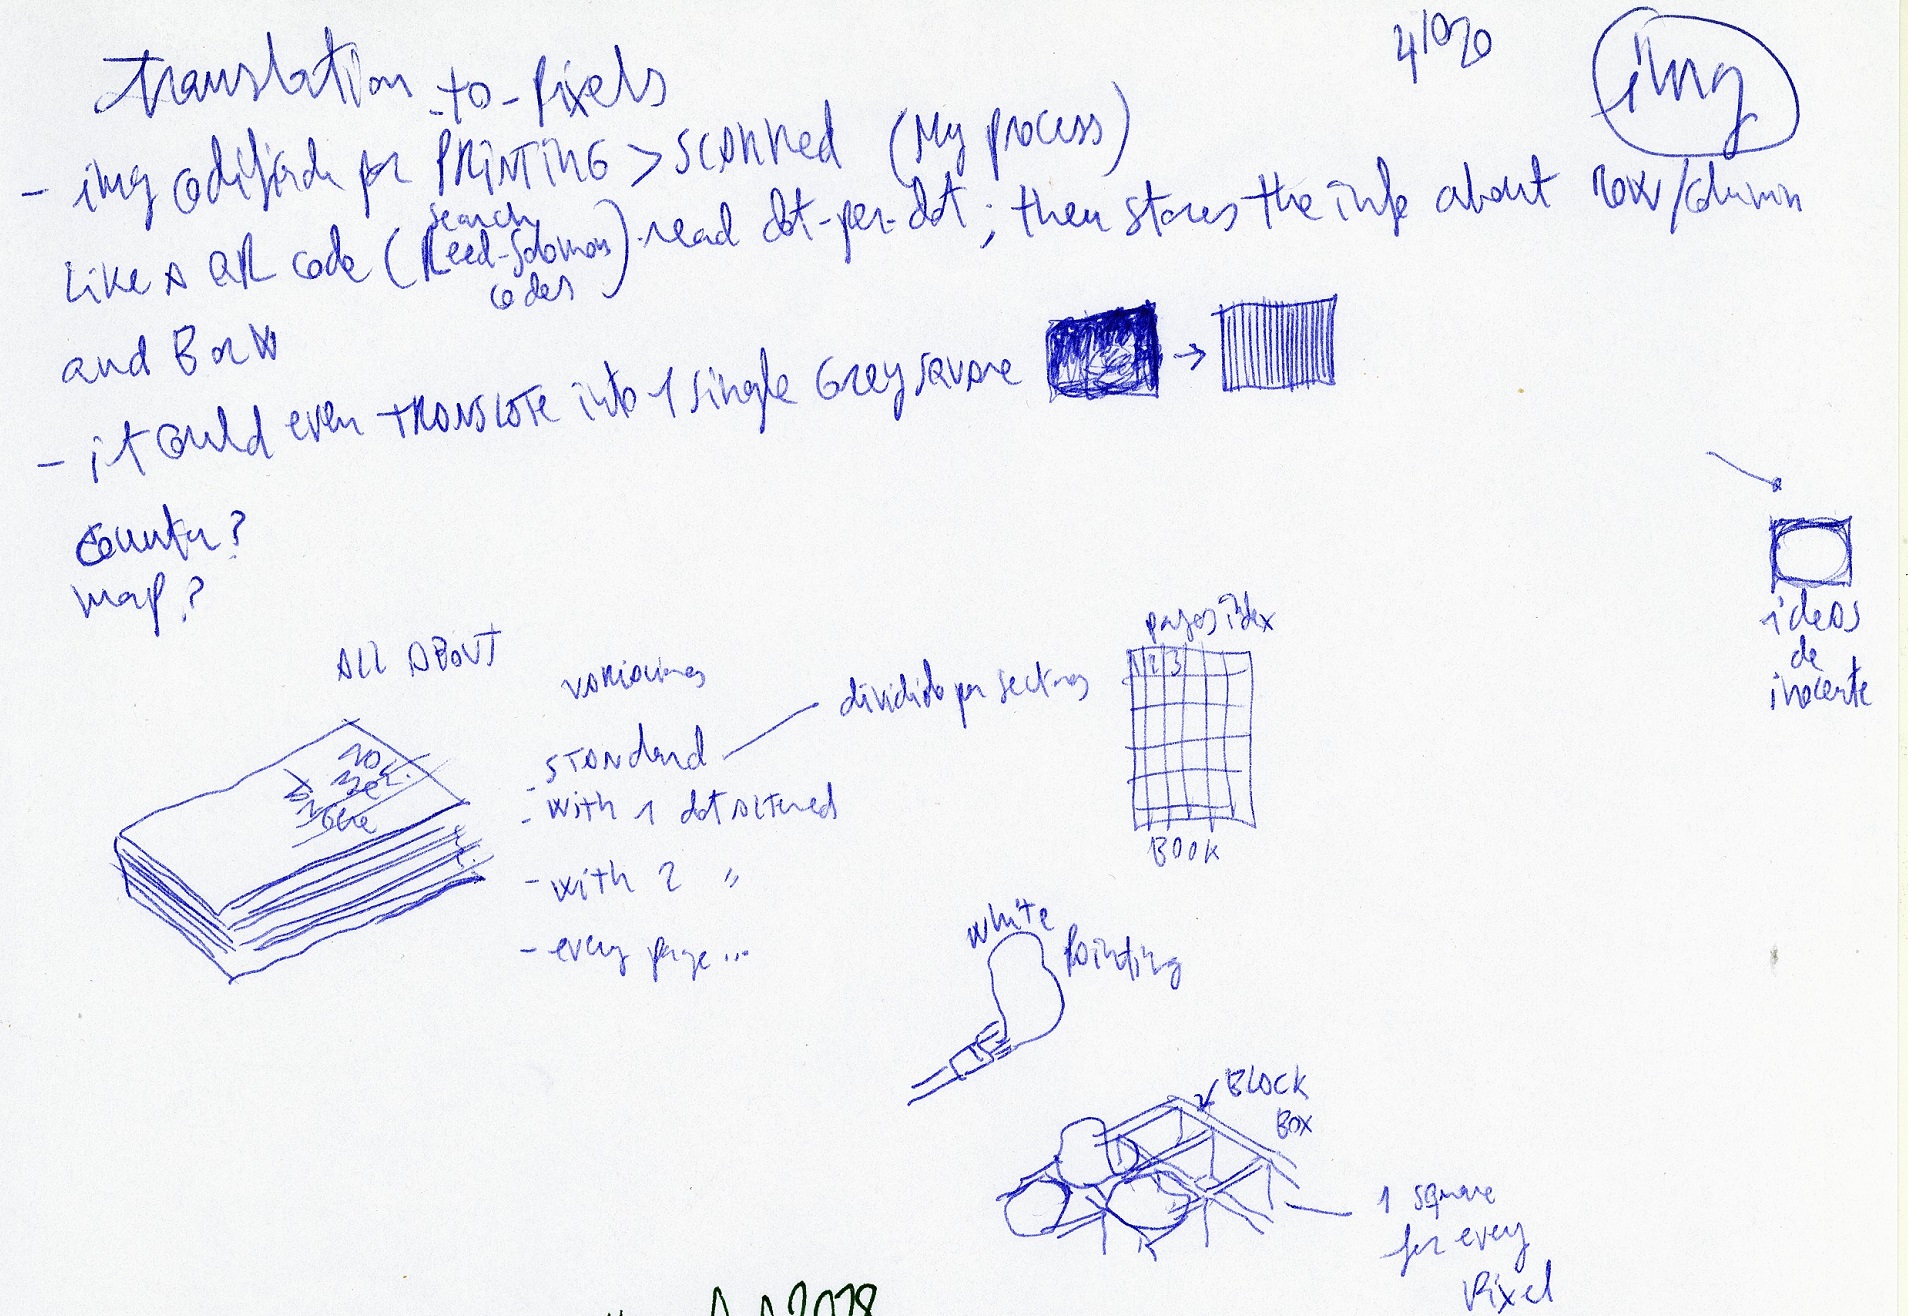 translation-to-pixels
4/020
img
- img codificada por PRINTING > SCANNED (My process)
Like A QR code (Reed-Solomon codes) read dot-per-dot; then stores the info about row/column
search
and B or W
- it could even TRANSLATE into 1 single Grey square →
counter?
map?
ideas
de
inocente
pages index
1 2 3
BOOK
ALL ABOUT
variaciones
- STANdard
dividido por sectores
- with 1 dot altered
- with 2 "
- every page...
white
Painting
BLOCK
BOX
1 square
for every
Pixel
2018